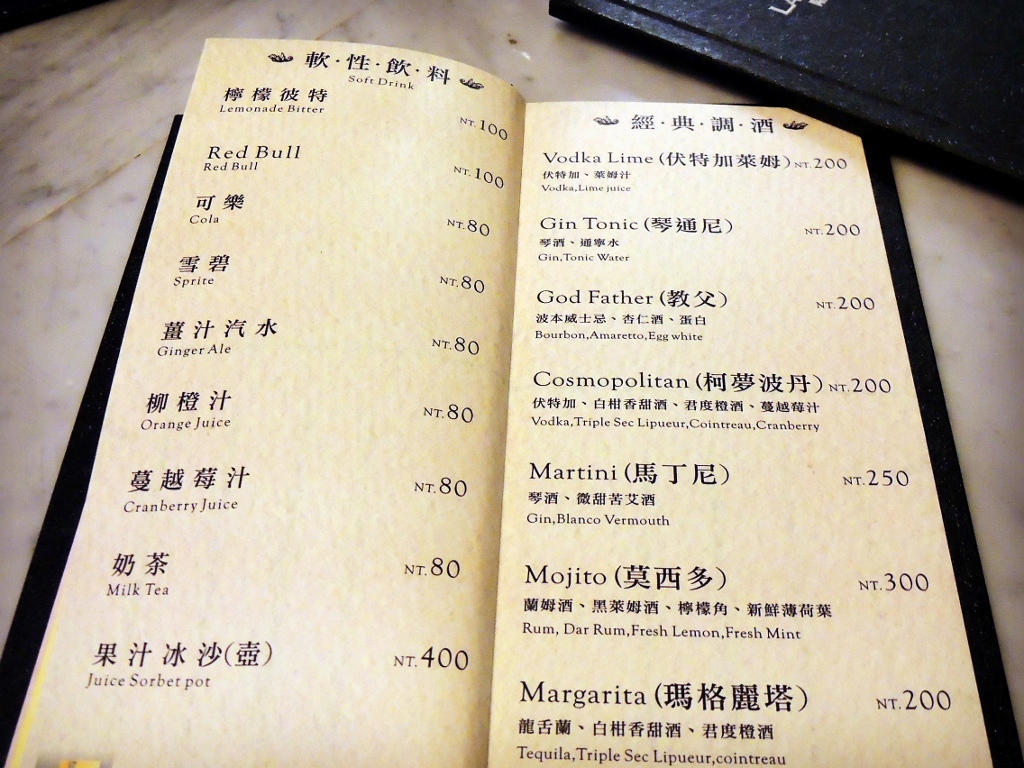 軟·性·飲·料
Soft Drink
檸檬彼特
Lemonade Bitter
NT.100
Red Bull
Red Bull
NT.100
可樂
Cola
NT.80
雪碧
Sprite
NT.80
薑汁汽水
Ginger Ale
NT.80
柳橙汁
Orange Juice
NT.80
蔓越莓汁
Cranberry Juice
NT.80
奶茶
Milk Tea
NT.80
果汁冰沙(壺)
Juice Sorbet pot
NT.400
經·典·調·酒
Vodka Lime (伏特加萊姆) NT.200
伏特加、萊姆汁
Vodka,Lime juice
Gin Tonic (琴通尼) NT.200
琴酒、通寧水
Gin,Tonic Water
God Father (教父) NT.200
波本威士忌、杏仁酒、蛋白
Bourbon,Amaretto,Egg white
Cosmopolitan (柯夢波丹) NT.200
伏特加、白柑香甜酒、君度橙酒、蔓越莓汁
Vodka,Triple Sec Lipueur,Cointreau,Cranberry
Martini (馬丁尼) NT.250
琴酒、微甜苦艾酒
Gin,Blanco Vermouth
Mojito (莫西多) NT.300
蘭姆酒、黑萊姆酒、檸檬角、新鮮薄荷葉
Rum, Dar Rum,Fresh Lemon,Fresh Mint
Margarita (瑪格麗塔) NT.200
龍舌蘭、白柑香甜酒、君度橙酒
Tequila,Triple Sec Lipueur,cointreau